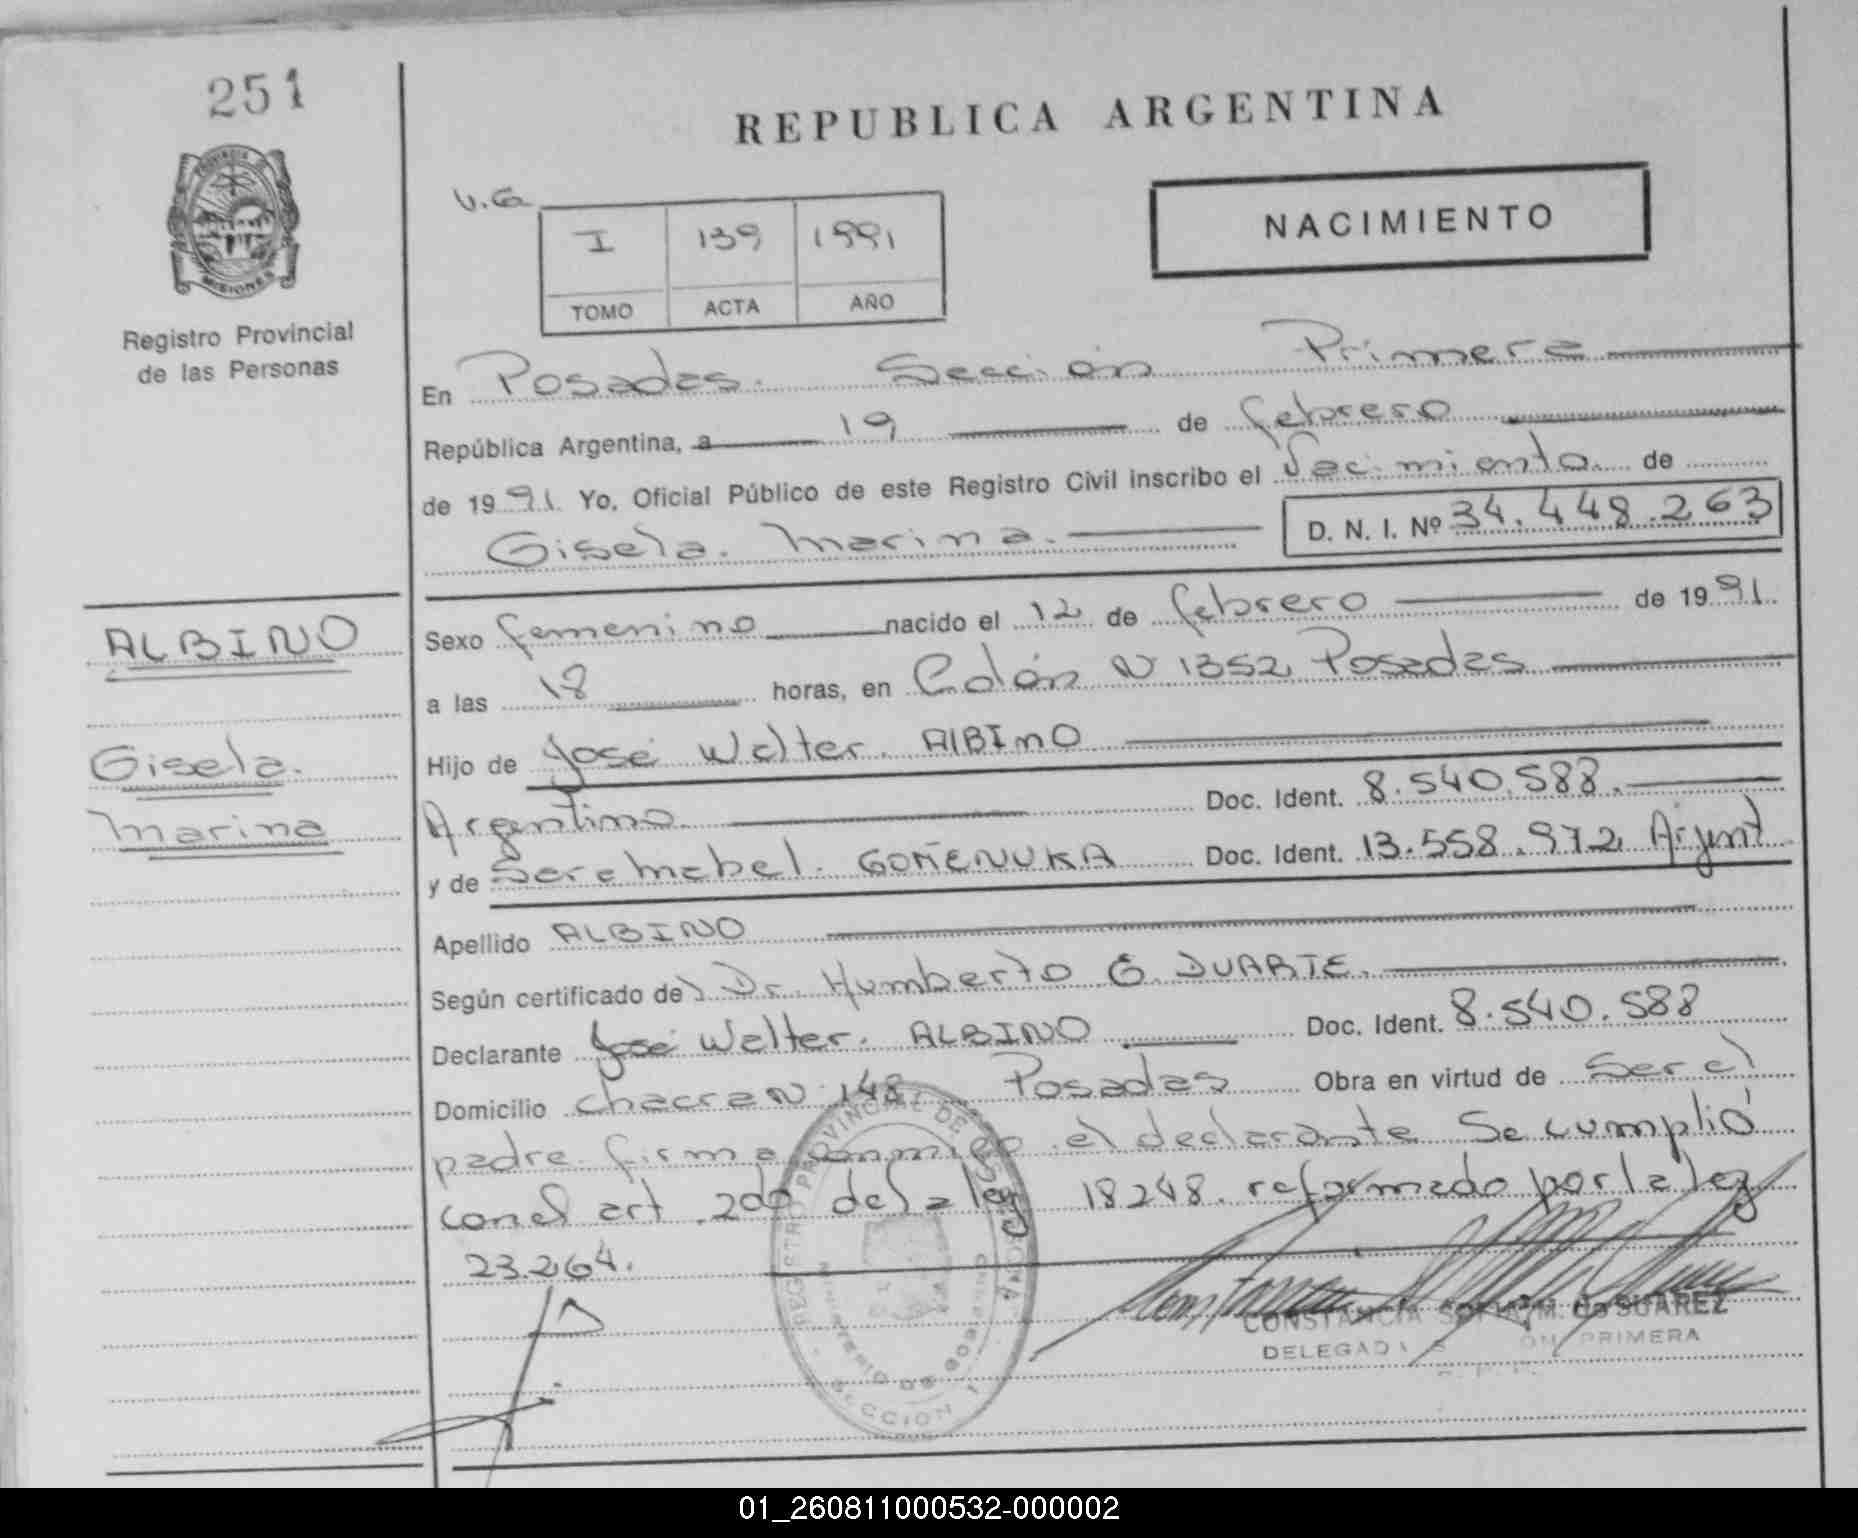 251
REPUBLICA ARGENTINA
PROVINCIA DE
MISIONES
Registro Provincial
de las Personas
U.G.
I 139 1991
TOMO ACTA AÑO
NACIMIENTO
En Posadas. Sección Primera
República Argentina, a 19 de febrero
de 1991. Yo, Oficial Público de este Registro Civil inscribo el Nacimiento de
Gisela. Marina. D. N. I. Nº 34.448.263
ALBINO
Gisela.
Marina
Sexo femenino nacido el 12 de febrero de 1991.
a las 18 horas, en Colón N 1352 Posadas
Hijo de José Walter. AlBINO
Argentino. Doc. Ident. 8.540.588.
y de Sara Mabel. GOMEÑUKA Doc. Ident. 13.558.972 Argent.
Apellido ALBINO
Según certificado de Dr. Humberto G. DUARTE.
Declarante José Walter. ALBINO Doc. Ident. 8.540.588
Domicilio chacra N 148 Posadas Obra en virtud de Ser el
padre. firma conmigo el declarante Se cumplió
con el art. 200 de la ley 18248. reformado por la ley
23.264.
REGISTRO PROVINCIAL DE LAS PERSONAS
MINISTERIO DE GOBIERNO
SECCION 1
CONSTANCIA SOFIA M. de SUAREZ
DELEGADA SECCION PRIMERA
01_260811000532-000002